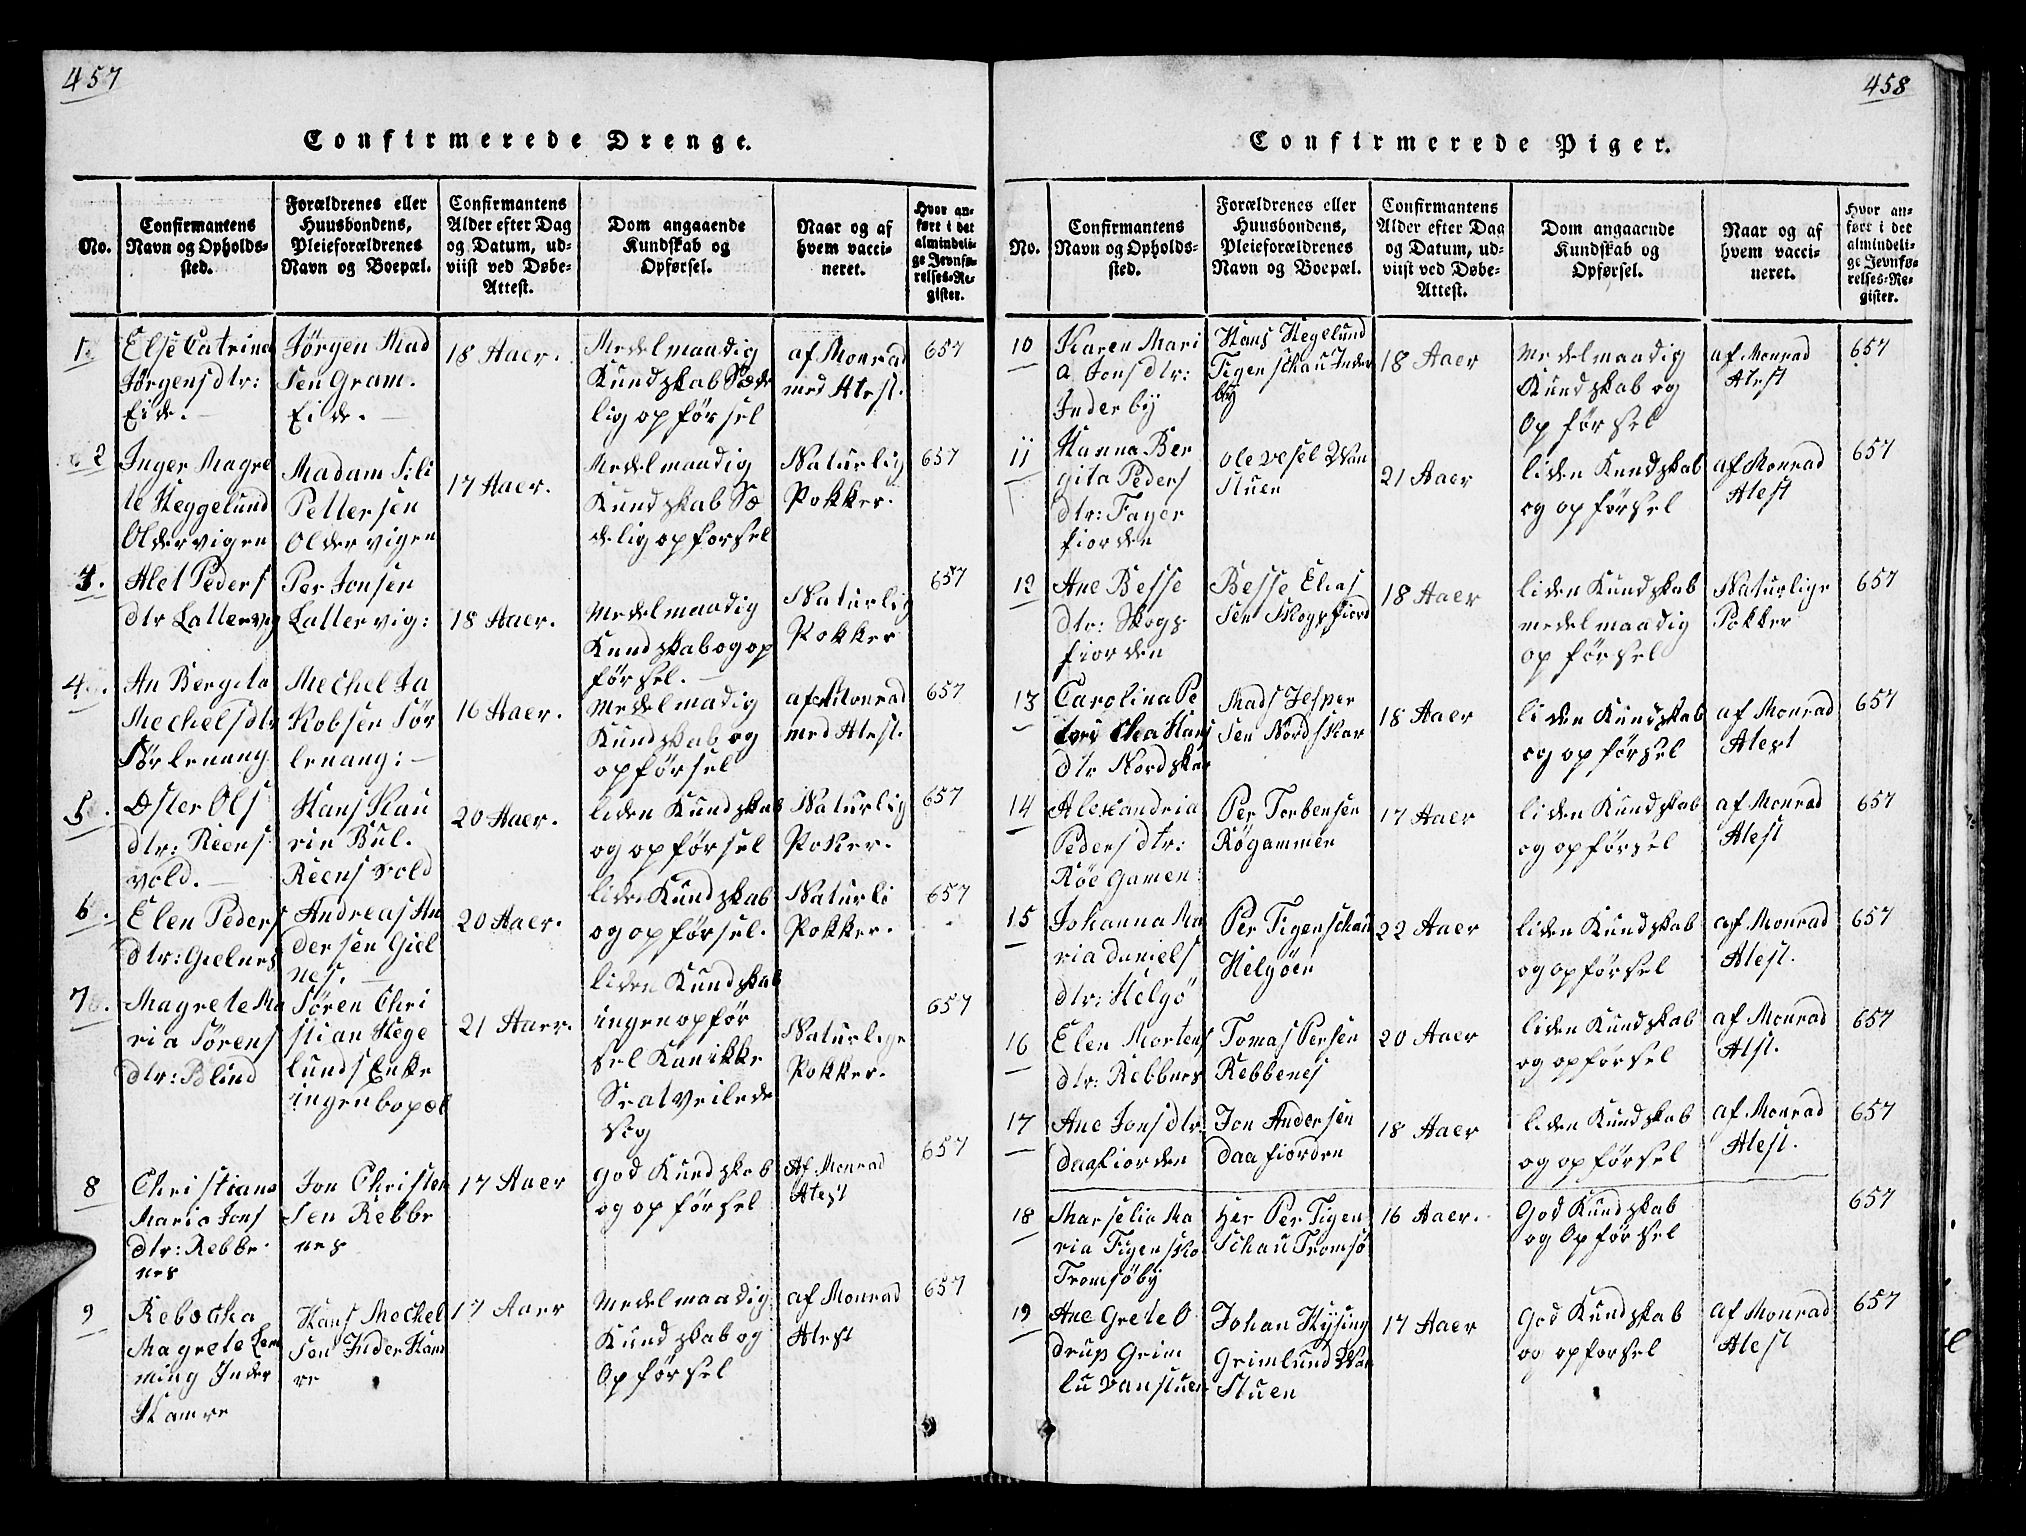 457
Confirmerede Drenge.
No.
Confirmantens
Navn og Opholds-
sted.
Forældrenes eller
Huusbondens,
Pleieforældrenes
Navn og Boepæl.
Confirmantens
Alder efter Dag
og Datum, ud-
viist ved Døbe-
Attest.
Dom angaaende
Kundskab og
Opførsel.
Naar og af
hvem vacci-
neret.
Hvor an-
ført i det
almindeli-
ge Jevnfø-
relses-Re-
gister.
1.
Else Catrina
Jørgensdtr:
Eide.
Jørgen Mad
Sen Gram.
Eide.
18 Aaer.
Medelmaadig
Kundskab Sæde
lig opførsel
af Monrad
med Atest.
657
2
Inger Magre
te Heggelund
Oldervigen
Madam Sili
Pettersen
Oldervigen
17 Aaer.
Medelmaadig
Kundskab Sæ
delig opforsel
Naturlig
Pokker.
657
3.
Alet Peders
dtr Lattervig
Per Jonsen
Lattervig:
18 Aaer.
Medelmaadig
Kundskab og op
førsel.
Naturlig
Pokker
657
4.
An Bergita
Mechelsdtr
Sørlenang
Mechel Ja
Kobsen Sør
lenang:
16 Aaer.
Medelmadig
Kundskab og
opførsel
af Monrad
med Atest.
657
5.
Oster Ols
dtr: Reens
vold.
Hans Kau
rin Bul.
Reens vold
20 Aaer.
liden Kundskab
og opførsel
Naturlig
Pokker.
657
6.
Elen Peders
dtr: Gielnes
Andreas An
dersen Giel
nes.
20 Aaer.
liden Kundskab
og opførsel.
Naturli
Pokker.
657
7.
Magrete Ma
ria Sørens
dtr: Blind
Søren Chri
stian Hege
lunds Enke
ingen bopæl
21 Aaer.
liden Kundskab
ingen opfør
sel Kan ikke
Se at veilede
sig
Naturlige
Pokker.
657
8
Christiana
Maria Jons
dtr: Rebbe
nes
Jon Christen
Sen Rebbe
nes
17 Aaer
God Kundskab
og opførsel
Af Monrad
Atest
657
9
Rebocka
Magrete Lem
ming Inder
Kamre
Hans Mechel
Sen Inder Kam
re
17 Aaer
Medelmaadig
Kundskab og
Opførsel
af Monrad
Atest
657
458
Confirmerede Piger.
No.
Confirmantens
Navn og Opholds-
sted.
Forældrenes eller
Huusbondens,
Pleieforældrenes
Navn og Boepæl.
Confirmantens
Alder efter Dag
og Datum, ud-
viist ved Døbe-
Attest.
Dom angaaende
Kundskab og
Opførsel.
Naar og af
hvem vacci-
neret.
Hvor an-
ført i det
almindeli-
ge Jevnfø-
relses-Re-
gister.
10
Karen Mari
a Jonsdtr:
Inderby
Hans Hegelund
Figenschau Inder
by
18 Aaer
Medelmaadig
Kundskab og
Opførsel
af Monrad
Atest
657
11
Hanna Ber
gita Peders
dtr: Fager
fiorden
Ole Vesel Wan
Stuen
21 Aaer
liden Kundskab
og opførsel
af Monrad
Atest
657
12
Ane Besse
dtr: Skogs
fiorden
Besse Elias
Sen Skogsfiord
18 Aaer
liden Kundskab
medelmaadig
opførsel
Naturlige
Pokker
657
13
Carolina Pe
tri Cha Hans
dtr Nordskar
Mads Jesper
Sen Nordskar
18 Aaer
liden Kundskab
og opførsel
af Monrad
Atest
657
14
Alexandria
Pedersdtr:
Røe Gamen
Per Torbensen
Røgammen
17 Aaer
liden Kundskab
og opførsel
af Monrad
Atest
657
15
Johanna Ma
ria daniels
dtr: Helgø
Per Figenschau
Helgøen
22 Aaer
liden Kundskab
og opførsel
af Monrad
Atest.
657
16
Elen Mortens
dtr: Rebbnes
Tomas Persen
Rebbenes
20 Aaer
liden Kundskab
og opførsel
af Monrad
Atst.
657
17
Ane Jonsdtr
daafiorden
Jon Andersen
daafiorden
18 Aaer
liden Kundskab
og opførsel
af Monrad
Atest.
657
18
Marselia Ma
ria Figensko
Tromsøby
Her Per Figen
Schau Tromsø
16 Aaer.
God Kundskab
og Opførsel
657
19
Ane Grete O
drup Grim
lu Vanstuen
Johan Hysing
Grimlund Wan
Stuen
17 Aaer
God Kundskab
og opforsel
af Monrad
Atest
657